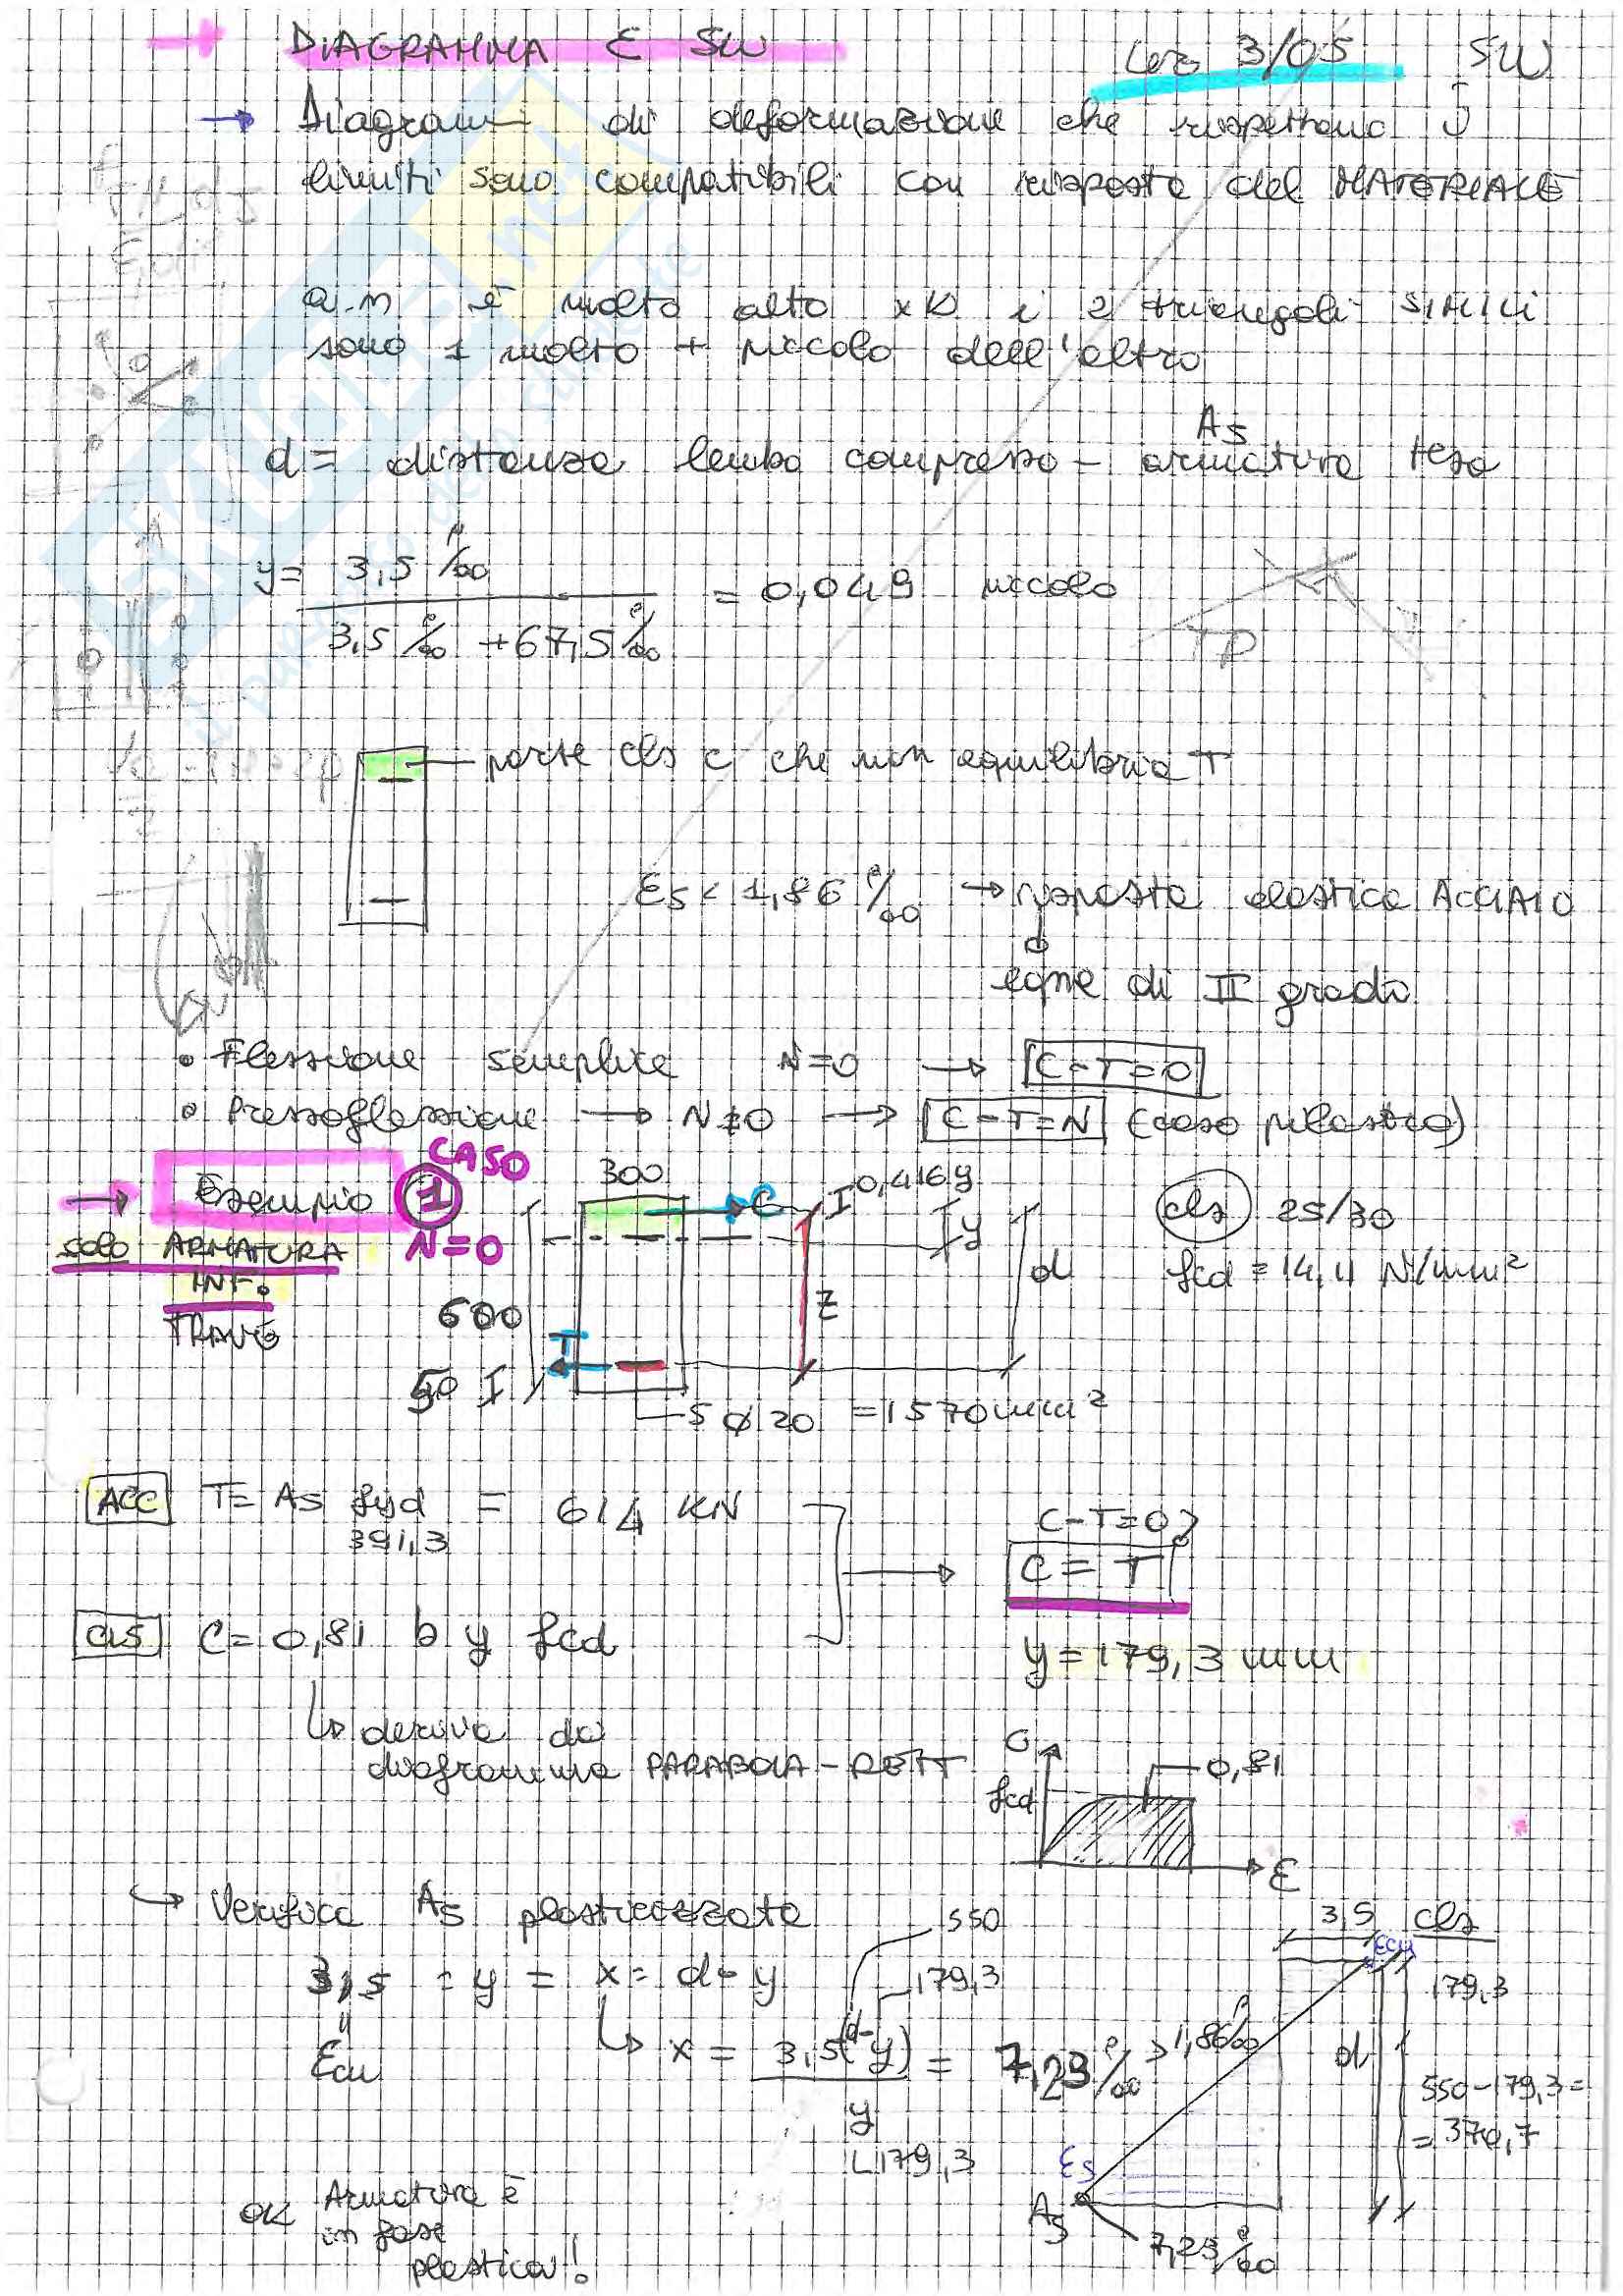 → DIAGRAMMA E SLU
Lez 3/05 SLU
→ Diagrammi di deformazione che rispettano i
limiti sono compatibili con risposta del MATERIALE
a.n è molto alto xk i 2 triangoli SIMILI
sono 1 molto + piccolo dell'altro
As
d = distanza lembo compresso - armatura tesa
y = 3,5 ‰ / (3,5 ‰ + 67,5 ‰) = 0,049 piccolo
parte cls c che non equilibria T
Es < 1,86 ‰ → risposta elastica ACCIAIO
eqne di II grado
• Flessione semplice N=0 → C-T=0
• Pressoflessione → N≠0 → C-T=N (caso pilastro)
→ Esempio 1 CASO
N=0
solo ARMATURA
INF.
TRAVE
300
C
0,416y
y
d
z
600
T
50
5 ø 20 = 1570 mm²
cls 25/30
fcd = 14,11 N/mm²
ACC T = As fyd = 614 KN
391,3
C-T=0
C = T
cls C = 0,81 b y fcd
y = 179,3 mm
↳ deriva da
diagramma PARABOLA-RETT
σ
fcd
0,81
ε
↳ Verifica As plasticizzata
550
3,5 : y = x = d-y
179,3
Ecu
↳ x = 3,5(d-y) / y = 7,23 ‰ > 1,86‰
179,3
3,5 cls
Ecu
179,3
d
550-179,3=
= 370,7
Es
As
7,23 ‰
OK Armatura è
in fase
plastica!